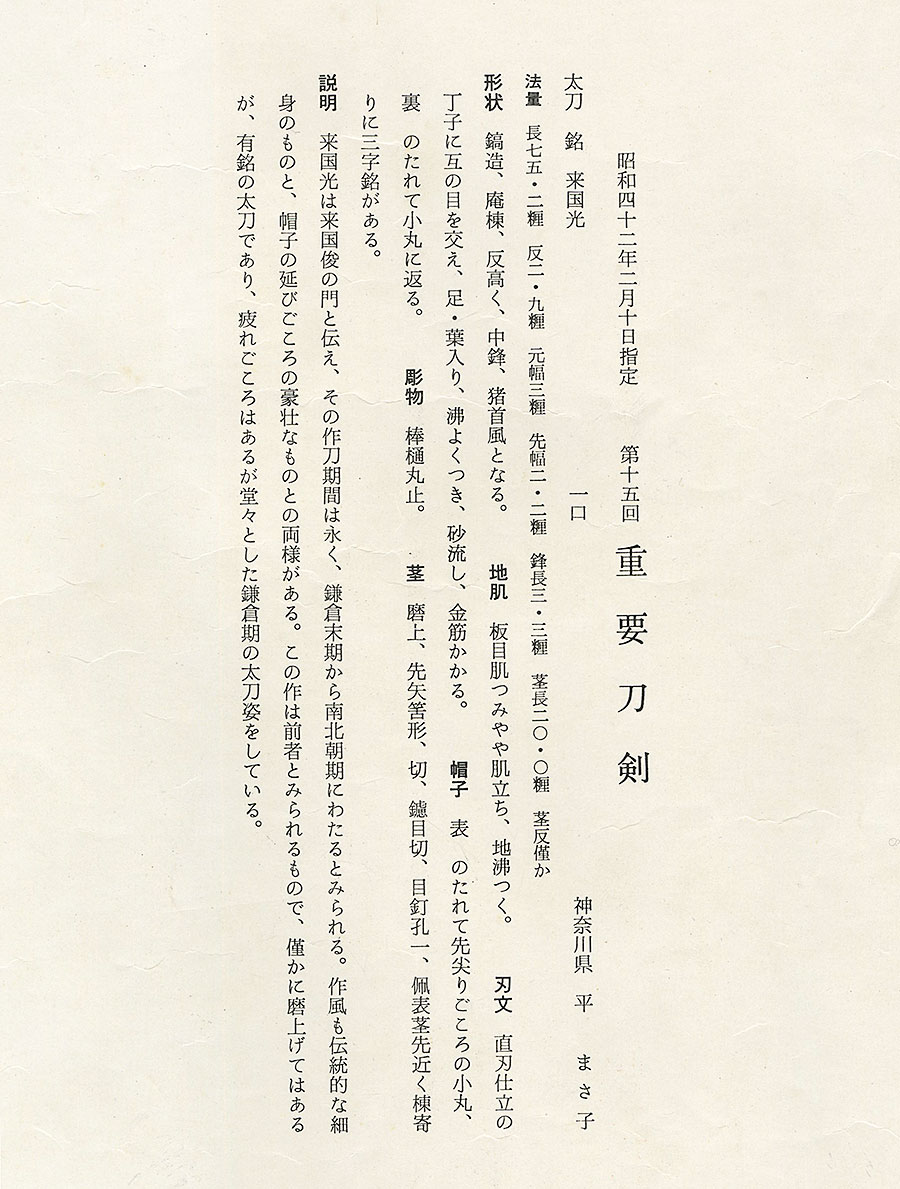 昭和四十二年二月十日指定　第十五回　重要刀剣
太刀　銘　来国光　一口　神奈川県　平　まさ子
法量　長七五・二糎　反二・九糎　元幅三糎　先幅二・二糎　鋒長三・三糎　茎長二〇・〇糎　茎反僅か
形状　鎬造、庵棟、反高く、中鋒、猪首風となる。　地肌　板目肌つみやや肌立ち、地沸つく。　刃文　直刃仕立の
丁子に互の目を交え、足・葉入り、沸よくつき、砂流し、金筋かかる。　帽子　表　のたれて先尖りごころの小丸、
裏　のたれて小丸に返る。　彫物　棒樋丸止。　茎　磨上、先矢筈形、切、鑢目切、目釘孔一、佩表茎先近く棟寄
りに三字銘がある。
説明　来国光は来国俊の門と伝え、その作刀期間は永く、鎌倉末期から南北朝期にわたるとみられる。作風も伝統的な細
身のものと、帽子の延びごころの豪壮なものとの両様がある。この作は前者とみられるもので、僅かに磨上げてはある
が、有銘の太刀であり、疲れごころはあるが堂々とした鎌倉期の太刀姿をしている。